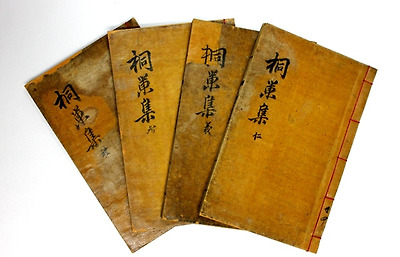 桐巢集
桐巢集
桐巢集 義
桐巢集 仁